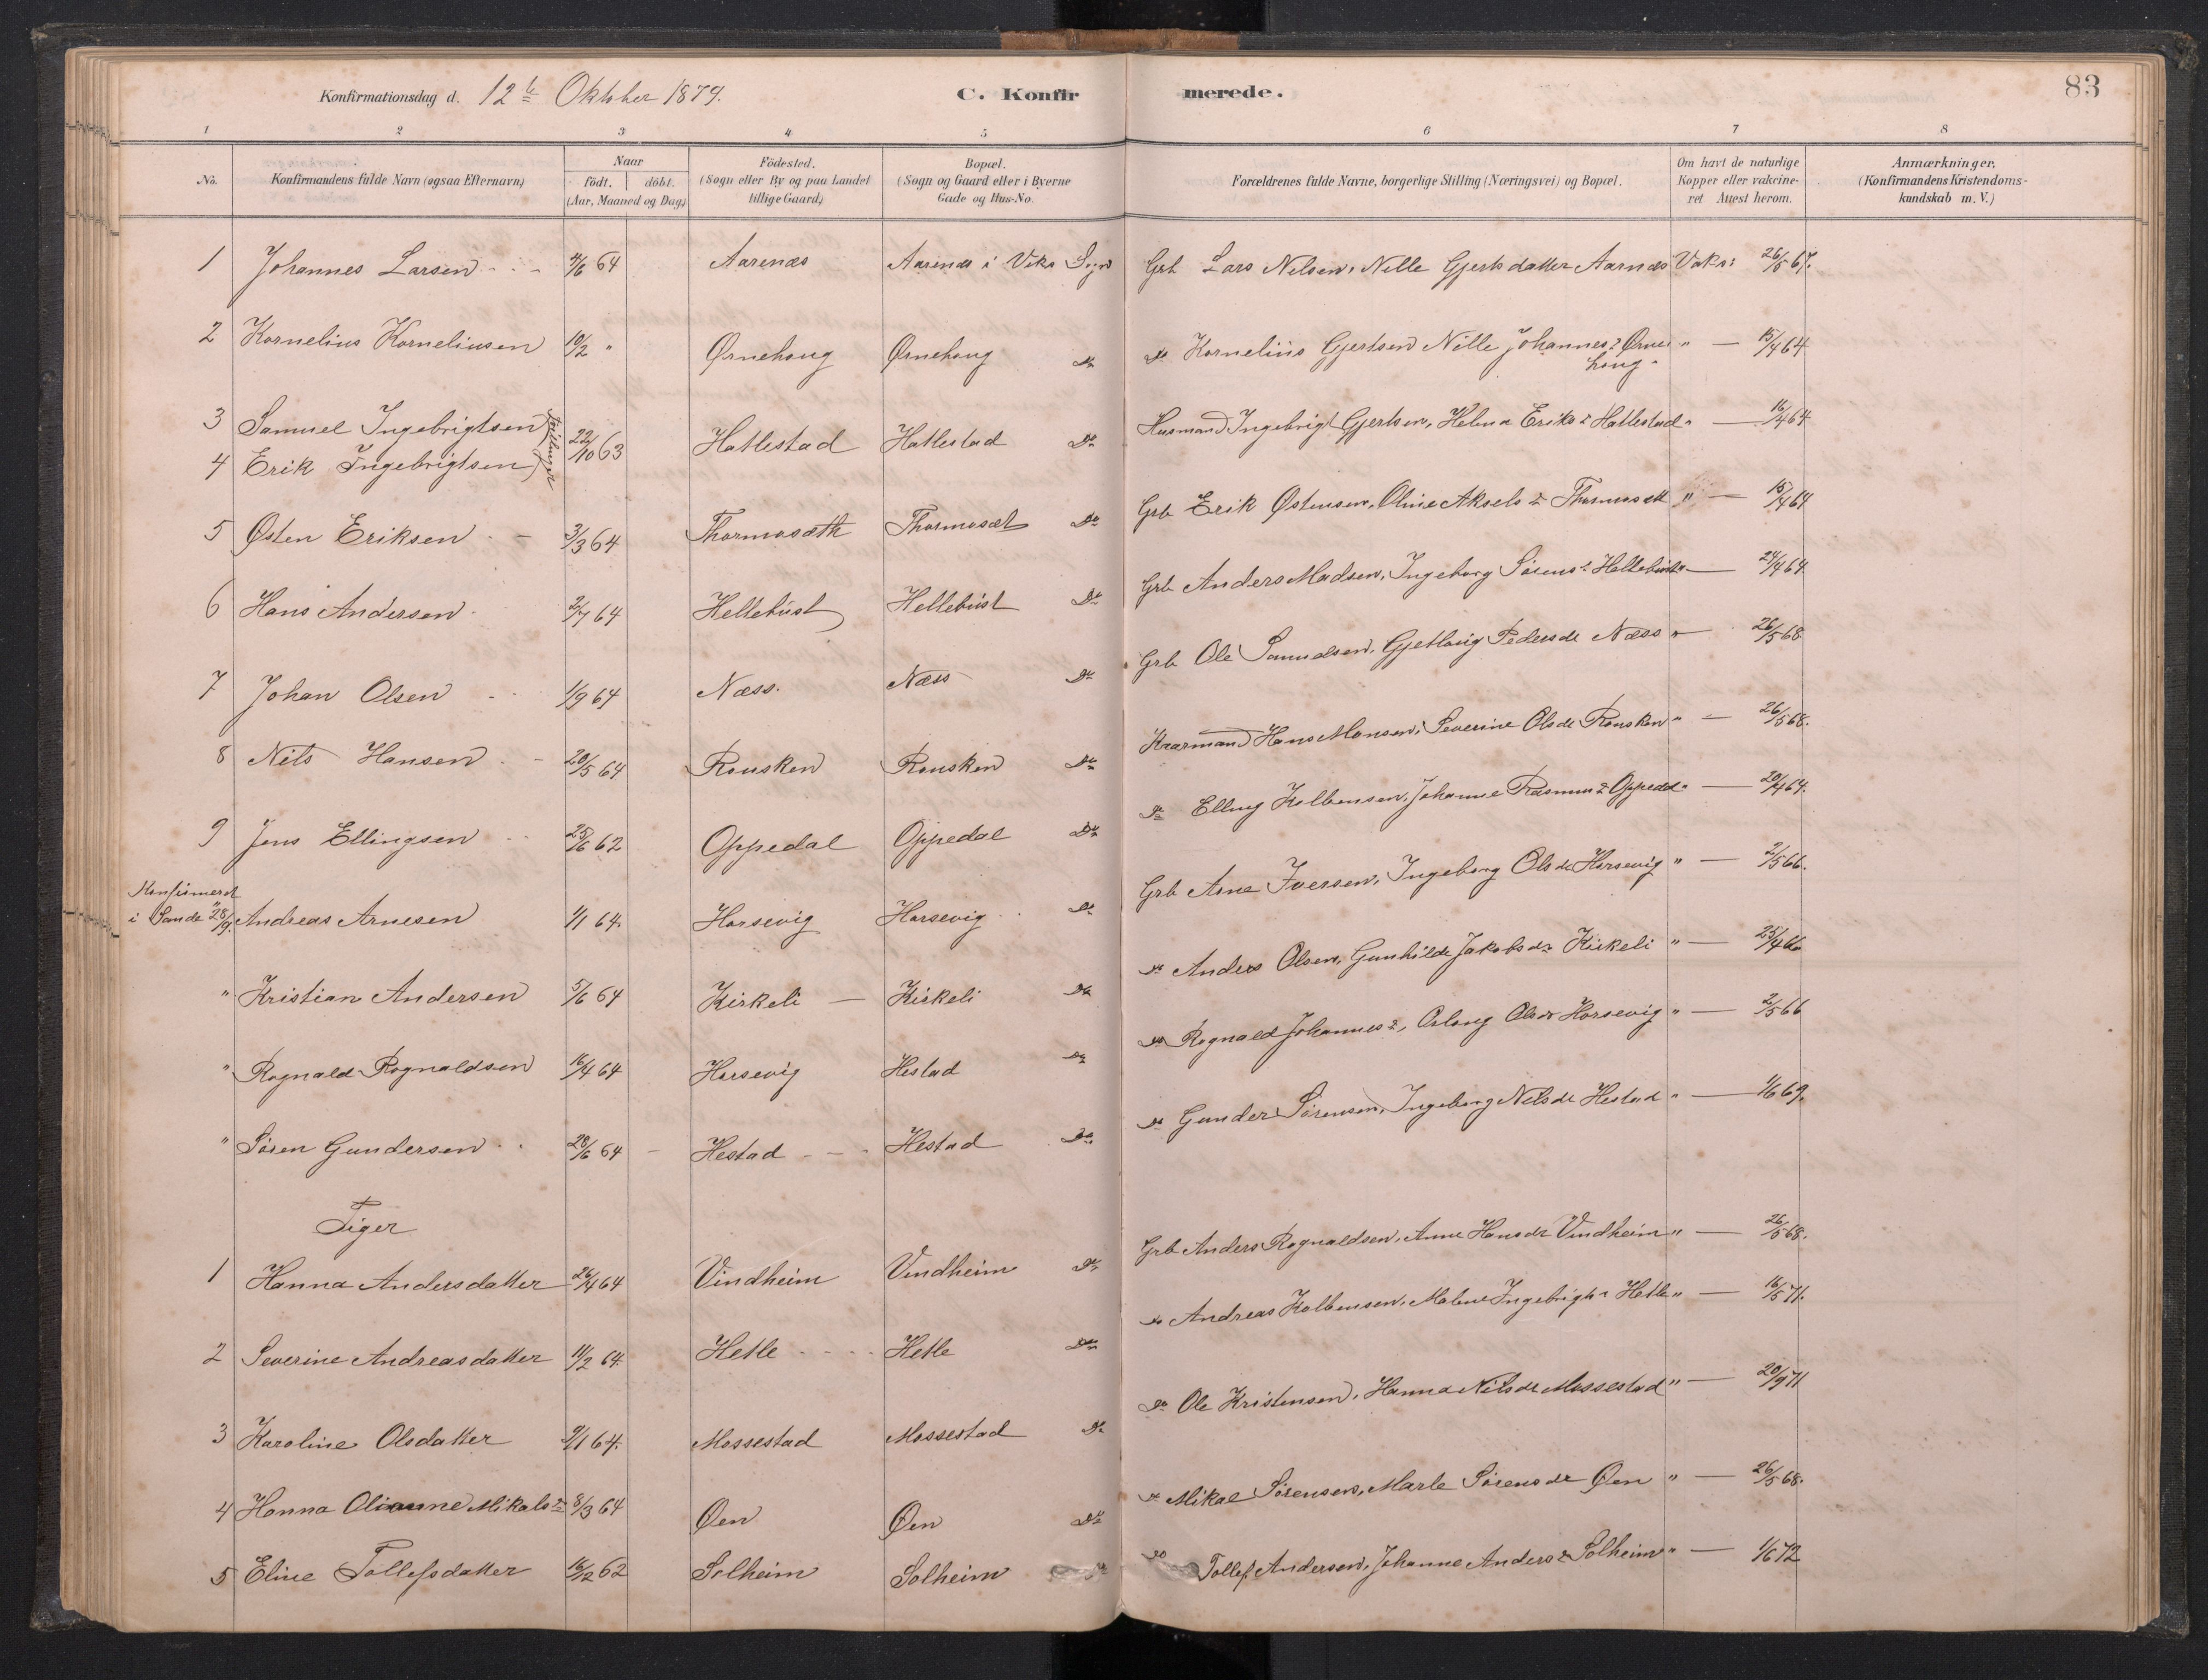 Konfirmationsdag d. 12te Oktober 1879. C. Konfirmerede. 83
1 2 3 4 5 6 7 8
No. Konfirmandens fulde Navn (ogsaa Efternavn) Naar född. döbt. (Aar, Maaned og Dag) Födested. (Sogn eller By og paa Landet tillige Gaard) Bopæl. (Sogn og Gaard eller i Byerne Gade og Hus-No. Forældrenes fulde Navne, borgerlige Stilling (Næringsvei) og Bopæl. Om havt de naturlige Kopper eller vakcineret Attest herom. Anmærkninger, (Konfirmandens Kristendomskundskab m. V.)
1 Johannes Larsen 64 Aarenæs Aarenæs i Viks Sogn Grb Lars Nilsen, Nille Gjertsdatter Aarnæs Vaks: 26/5 67.
2 Kornelius Korneliusen 10/2 " Ørnehoug Ørnehoug Do Do Kornelius Gjertsen Nille Johannesdr Ørne " — 15/4 64
houg
3 Samuel Ingebrigtsen Tvillinger 22/10 63 Hatlestad Hatlestad Do Husmand Ingebrigt Gjertsen, Helena Eriksdr Hatlestad " — 16/4 64
4 Erik Ingebrigtsen
5 Østen Eriksen 3/3 64 Thormosæth Thormosæt Do Grb Erik Østensen, Oline Akselsdr Thormosæt " — 15/4 64
6 Hans Andersen 2/4 64 Hellebust Hellebust Do Grb Anders Madsen, Ingeborg Sørensdr Hellebust " — 24/4 64
7 Johan Olsen 1/9 64 Næss. Næss Do Grb Ole Samuelsen, Gjetlaug Pedersdr Næss " — 26/5 68
8 Nils Hansen 20/5 64 Rousken Rousken Do Kaarmand Hans Monsen, Severine Olsdr Rousken " — 26/5 68.
9 Jens Ellingsen 25/6 62 Oppedal Oppedal Do Do Elling Kolbensen, Johanne Rasmusdr Oppedal " — 20/4 64.
Konfirmeret i Sande 28/9. " Andreas Arnesen 1/1 64. Horsevig Horsevig Do Grb Arne Iversen, Ingeborg Olsdr Horsevig " — 2/5 66.
" Kristian Andersen 5/6 64 Kirkeli — Kirkeli Do Do Anders Olsen, Gunhilde Jakobsdr Kirkeli " — 25/4 66
" Rognald Rognaldsen 16/4 64 Horsevig Hestad Do Do Rognald Johanness., Oslaug Olsdr Horsevig " — 2/5 66
" Søren Gundersen 20/6 64 — Hestad Hestad Do Do Gunder Sørensen, Ingeborg Nilsdr Hestad " — 1/6 69.
Piger
1 Hanna Andersdatter 26/4 64 Vindheim Vindheim Do Grb Anders Rognaldsen, Anne Hansdr Vindheim " — 26/5 68.
2 Severine Andreasdatter 11/2 64. Hetle Hetle Do Do Andreas Kolbensen, Malene Ingebrigtsdr Hetle " — 16/5 71.
3 Karoline Olsdatter 9/1 64. Mossestad Mossestad Do Do Ole Kristensen, Hanna Nilsdr Mossestad " — 20/9 71
4 Hanna Olianne Mikalsdr 8/3 64 Øen Øen Do Do Mikal Sørensen, Marte Sørensdr Øen " — 26/5 68.
5 Eline Tollefsdatter 16/12 62 Solheim Solheim Do Do Tollef Andersen, Johanne Andersdr Solheim " — 1/6 72